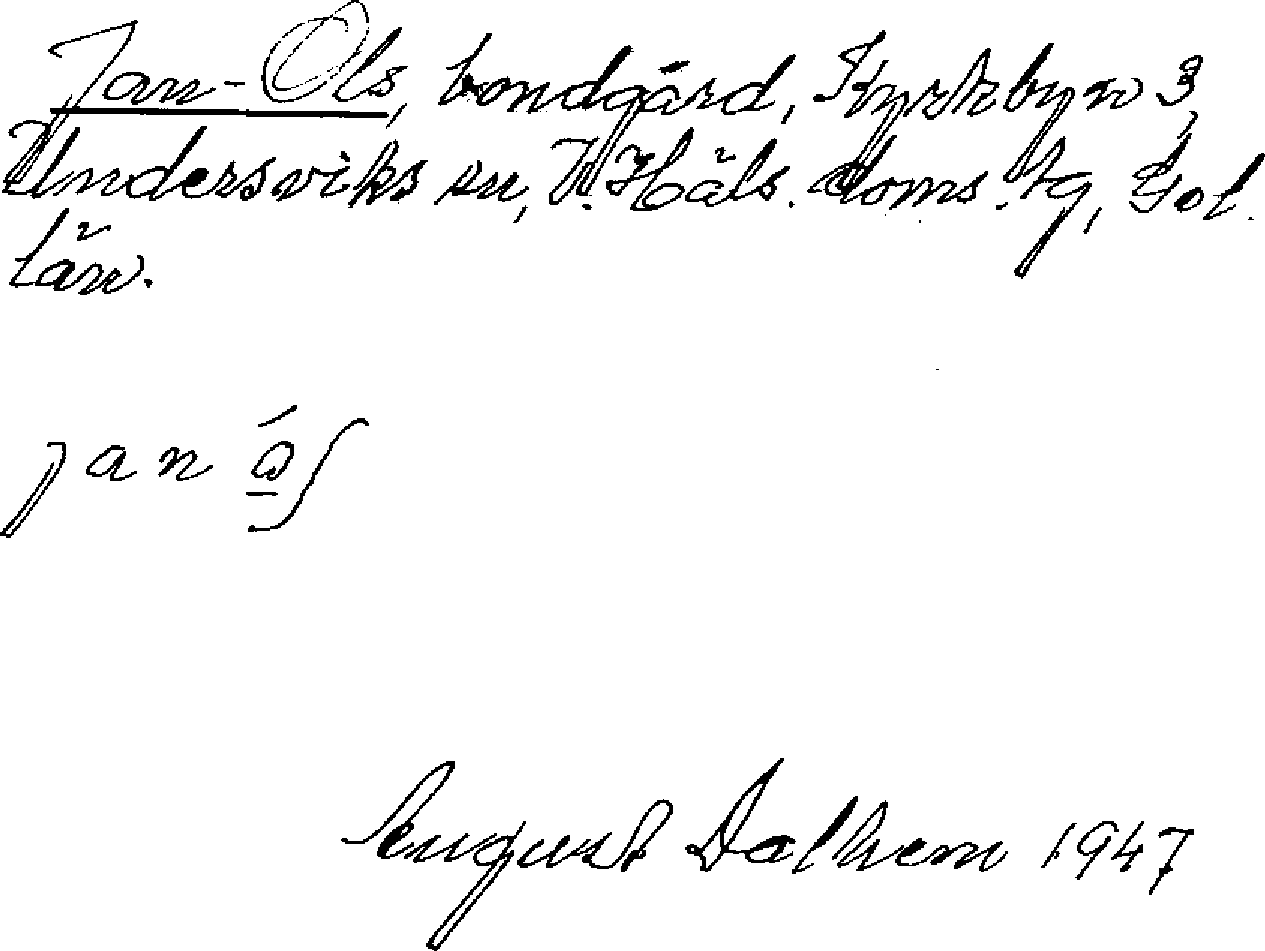 Jan-Ols, bondgård, Kyrkbyn 3,
Undersviks sn, V. Häls. doms. tg, Gvl.
län.
jan ó̱ʃ
August Dalhem 1947